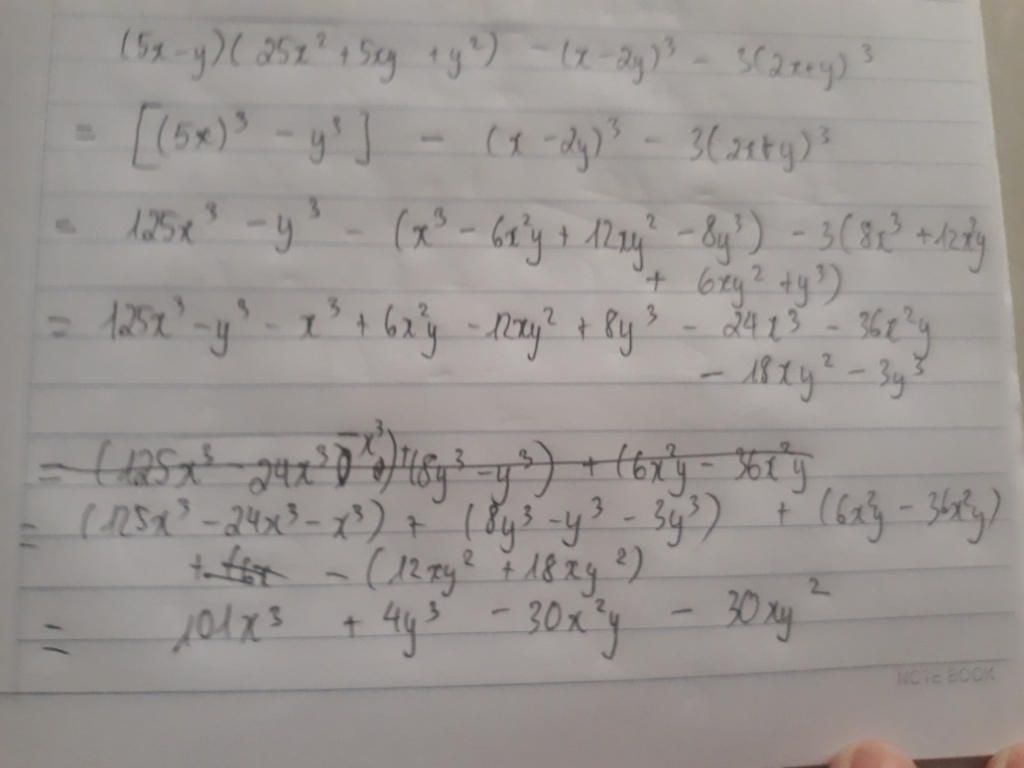 (5x - y)(25x² + 5xy + y²) - (x - 2y)³ - 3(2x+y)³
= [(5x)³ - y³] - (x - 2y)³ - 3(2x+y)³
= 125x³ - y³ - (x³ - 6x²y + 12xy² - 8y³) - 3(8x³ + 12x²y
+ 6xy² + y³)
= 125x³ - y³ - x³ + 6x²y - 12xy² + 8y³ - 24x³ - 36x²y
- 18xy² - 3y³
= (125x³ - 24x³ - x³) + (8y³ - y³) + (6x²y - 36x²y
= (125x³ - 24x³ - x³) + (8y³ - y³ - 3y³) + (6x²y - 36x²y)
+ - (12xy² + 18xy²)
= 101x³ + 4y³ - 30x²y - 30xy²
NOTE BOOK